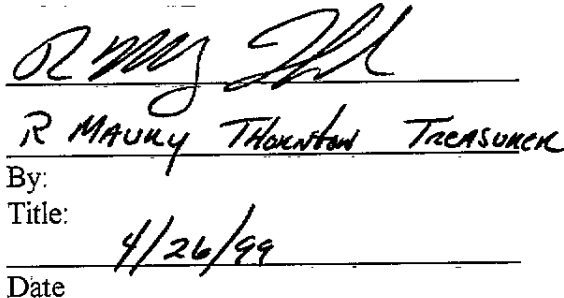 R MAURY THORNTON TREASURER
By:
Title:
4/26/99
Date